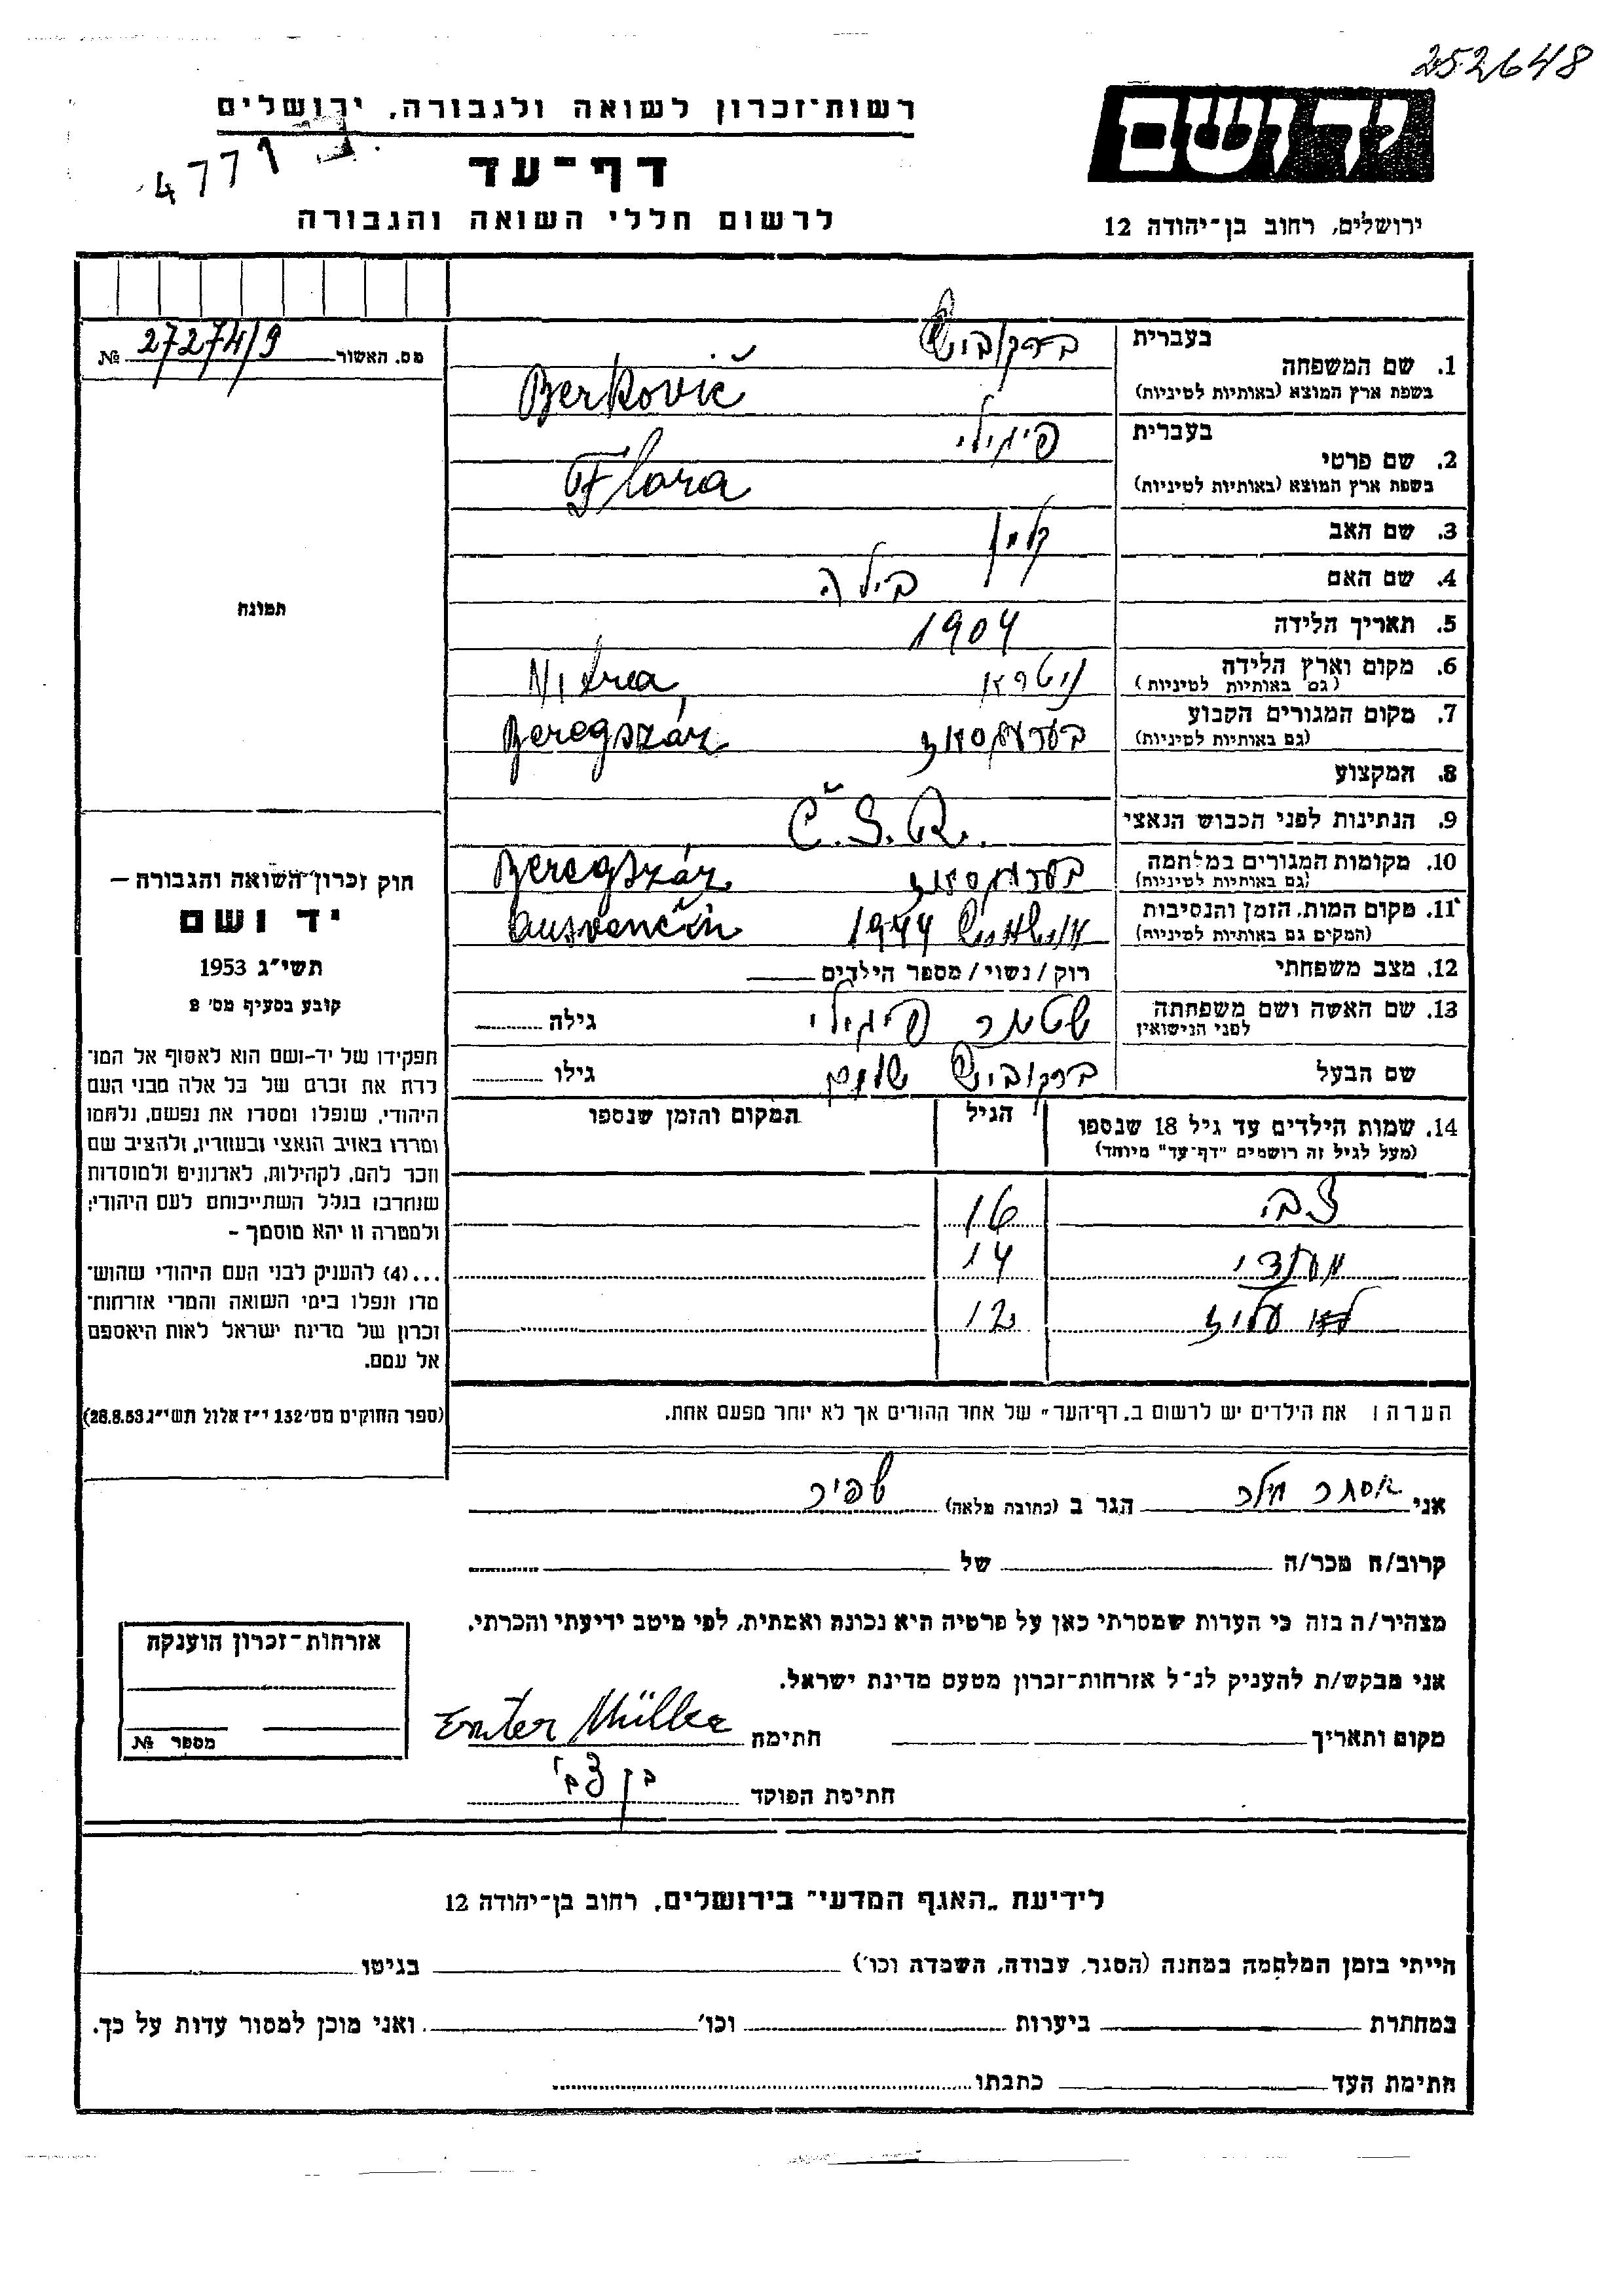 252648
רשות־זכרון לשואה ולגבורה, ירושלים
יד ושם
4771
דף־עד
לרשום חללי השואה והגבורה
ירושלים, רחוב בן־יהודה 12
מס. האשור 27274/9 №
בעברית ברקוביטש
1. שם המשפחה
בשפת ארץ המוצא (באותיות לטיניות) Berkovič
בעברית פייגילי
2. שם פרטי
בשפת ארץ המוצא (באותיות לטיניות) Flora
3. שם האב
4. שם האם בילה
5. תאריך הלידה 1904
6. מקום וארץ הלידה
(גם באותיות לטיניות) ניטרא Nitrea
7. מקום המגורים הקבוע
(גם באותיות לטיניות) בערעגסאז Beregszáz
8. המקצוע
9. הנתינות לפני הכבוש הנאצי Č.S.R.
10. מקומות המגורים במלחמה
(גם באותיות לטיניות) בערעגסאז Beregszáz
11. מקום המות, הזמן והנסיבות
(המקים גם באותיות לטיניות) 1944 Ausvenčin
12. מצב משפחתי רוק / נשוי / מספר הילדים
13. שם האשה ושם משפחתה
לפני הנישואין שטמר פייגילי גילה
שם הבעל ברקוביטש שלום גילו
14. שמות הילדים עד גיל 18 שנספו
(מעל לגיל זה רושמים "דף־עד" מיוחד)
הגיל
המקום והזמן שנספו
16
14
12
הערה: את הילדים יש לרשום ב"דף־העד" של אחד ההורים אך לא יותר מפעם אחת.
תמונה
חוק זכרון השואה והגבורה —
יד ושם
תשי"ג 1953
קובע בסעיף מס' 2
תפקידו של יד-ושם הוא לאסוף אל המו־
לדת את זכרם של כל אלה מבני העם
היהודי, שנפלו ומסרו את נפשם, נלחמו
ומרדו באויב הנאצי ובעוזריו, ולהציב שם
וזכר להם, לקהילות, לארגונים ולמוסדות
שנחרבו בגלל השתייכותם לעם היהודי;
ולמטרה זו יהא מוסמך –
...(4) להעניק לבני העם היהודי שהוש־
מדו ונפלו בימי השואה והמרי אזרחות־
זכרון של מדינת ישראל לאות היאספם
אל עמם.
(ספר החוקים מס' 132 י"ז אלול תשי"ג 28.8.53)
אני אסתר מילר הגר ב (כתובת מלאה) שפיר
קרוב/ה מכר/ה של
מצהיר/ה בזה כי העדות שמסרתי כאן על פרטיה היא נכונה ואמתית, לפי מיטב ידיעתי והכרתי.
אני מבקש/ת להעניק לנ"ל אזרחות-זכרון מטעם מדינת ישראל.
מקום ותאריך חתימה Ester Müller
חתימת הפוקד בן צבי
אזרחות-זכרון הוענקה
מספר №
לידיעת „האגף המדעי" בירושלים, רחוב בן־יהודה 12
הייתי בזמן המלחמה במחנה (הסגר, עבודה, השמדה וכו') בגיטו
במחתרת ביערות וכו' ואני מוכן למסור עדות על כך.
חתימת העד כתבתו